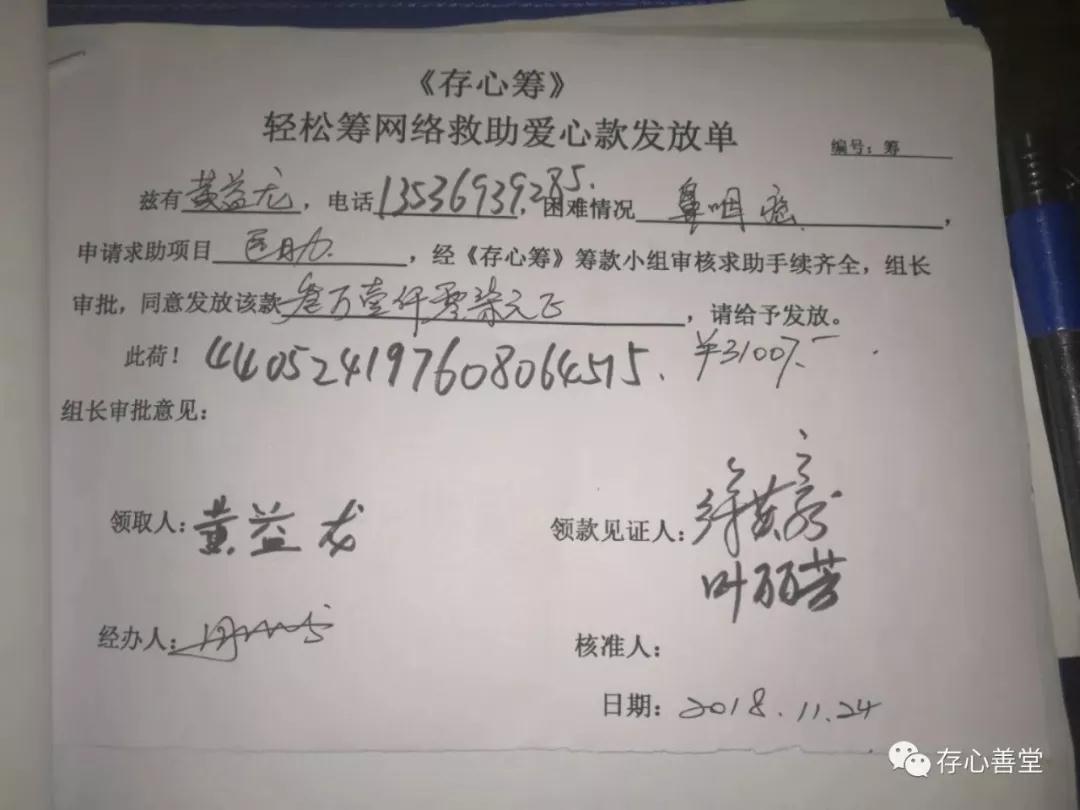 《存心筹》
轻松筹网络救助爱心款发放单
编号：筹
兹有黄益龙，电话13536939285.，困难情况鼻咽癌，
申请求助项目医助，经《存心筹》筹款小组审核求助手续齐全，组长
审批，同意发放该款叁万壹仟零柒元正，请给予发放。
此荷！440524197608064515. ￥31007.一
组长审批意见：
领取人：黄益龙 领款见证人：
叶丽芳
经办人： 核准人：
日期：2018.11.24
存心善堂